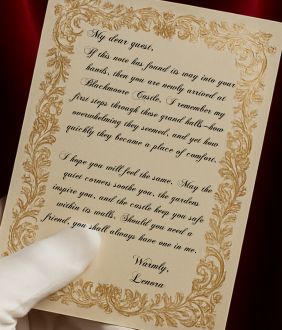 My dear guest,
If this note has found its way into your
hands, then you are newly arrived at
Blackmoore Castle. I remember my
first steps through these grand halls—how
overwhelming they seemed, and yet how
quickly they became a place of comfort.
I hope you will feel the same. May the
quiet corners soothe you, the gardens
inspire you, and the castle keep you safe
within its walls. Should you need a
friend, you shall always have one in me.
Warmly,
Lenora